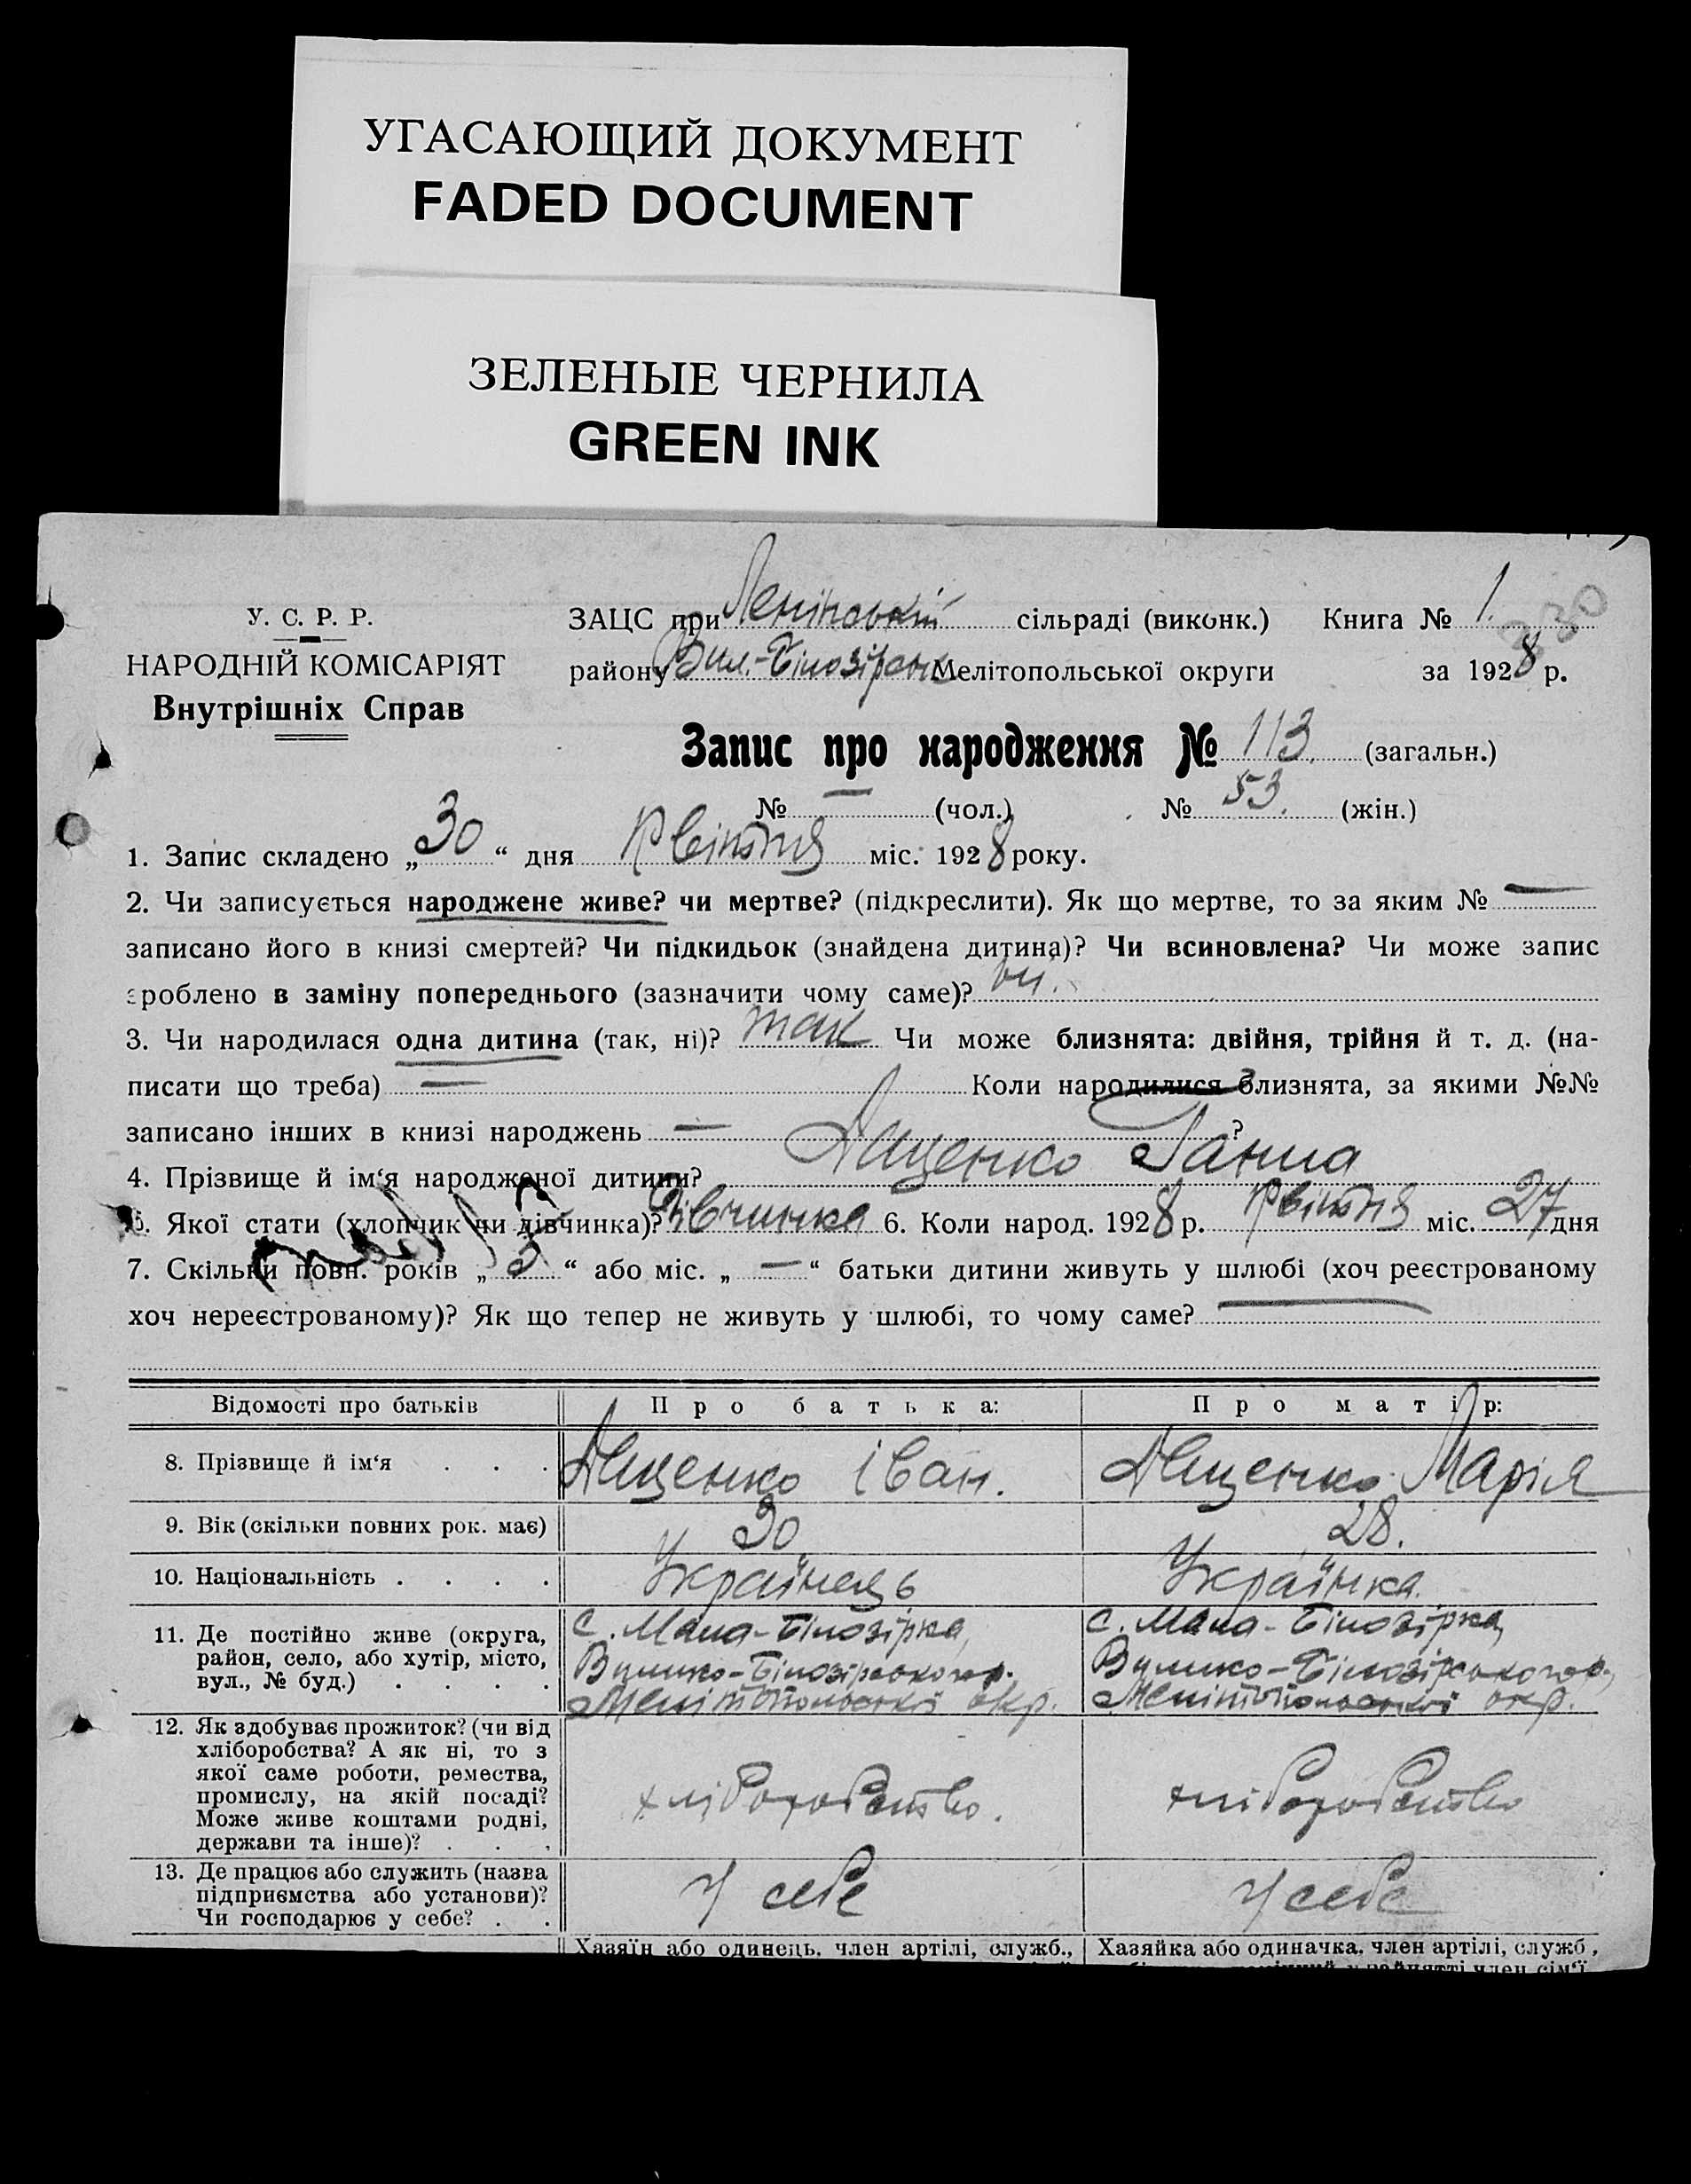 УГАСАЮЩИЙ ДОКУМЕНТ
FADED DOCUMENT
ЗЕЛЕНЫЕ ЧЕРНИЛА
GREEN INK
У. С. Р. Р.
НАРОДНІЙ КОМІСАРІЯТ
Внутрішніх Справ
ЗАЦС при Ленінській сільраді (виконк.) Книга № 1.
330
району Вил.-Білозірськ Мелітопольської округи за 1928 р.
Запис про народження № 113. (загальн.)
№ — (чол.) № 53. (жін.)
1. Запис складено „30“ дня Квітня міс. 1928 року.
2. Чи записується народжене живе? чи мертве? (підкреслити). Як що мертве, то за яким № —
записано його в книзі смертей? Чи підкидьок (знайдена дитина)? Чи всиновлена? Чи може запис
зроблено в заміну попереднього (зазначити чому саме)? ні.
3. Чи народилася одна дитина (так, ні)? так Чи може близнята: двійня, трійня й т. д. (на-
писати що треба) — Коли народилися близнята, за якими №№
записано інших в книзі народжень — ?
4. Прізвище й ім‘я народженої дитини? Ганна
5. Якої стати (хлопчик чи дівчинка)? Дівчинка 6. Коли народ. 1928 р. Квітня міс. 27 дня
7. Скільки повн. років „ “ або міс. „—“ батьки дитини живуть у шлюбі (хоч реєстрованому
хоч нереєстрованому)? Як що тепер не живуть у шлюбі, то чому саме?
Відомості про батьків Про батька: Про матір:
8. Прізвище й ім‘я . . . Іван. Марія
9. Вік (скільки повних рок. має) 30 28.
10. Національність . . . . Українець Українка.
11. Де постійно живе (округа, район, село, або хутір, місто, вул., № буд.) . . . .
с. Мала-Білозірка,
Вилико-Білозірського р.
Мелітопольської окр.
с. Мала-Білозірка,
Вилико-Білозірського р.,
Мелітопольської окр.
12. Як здобуває прожиток? (чи від
хліборобства? А як ні, то з
якої саме роботи, ремества,
промислу, на якій посаді?
Може живе коштами родні,
держави та інше)? . . .
хліборобство. хліборобство
13. Де працює або служить (назва
підприємства або установи)?
Чи господарює у себе? . .
У себе У себе
Хазяїн або одинець, член артілі, служб., Хазяйка або одиначка, член артілі, служб.,